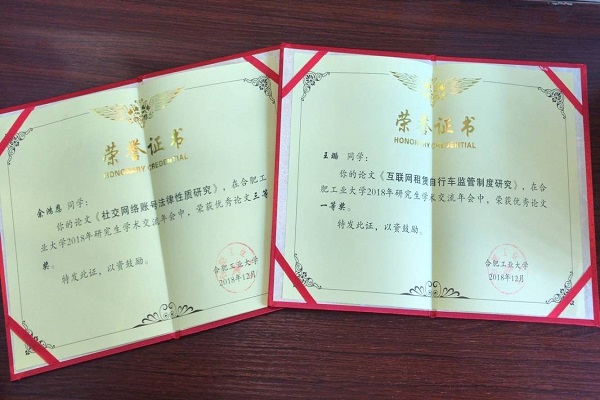 荣誉证书
HONORARY CREDENTIAL
金鸿惠 同学:
你的论文《社交网络账号法律性质研究》,在合肥工
业大学2018年研究生学术交流年会中,荣获优秀论文三等
奖。
特发此证,以资鼓励。
合肥工业大学
2018年12月
荣誉证书
HONORARY CREDENTIAL
王璐 同学:
你的论文《互联网租赁自行车监管制度研究》,在合
肥工业大学2018年研究生学术交流年会中,荣获优秀论文
一等奖。
特发此证,以资鼓励。
合肥工业大学
2018年12月